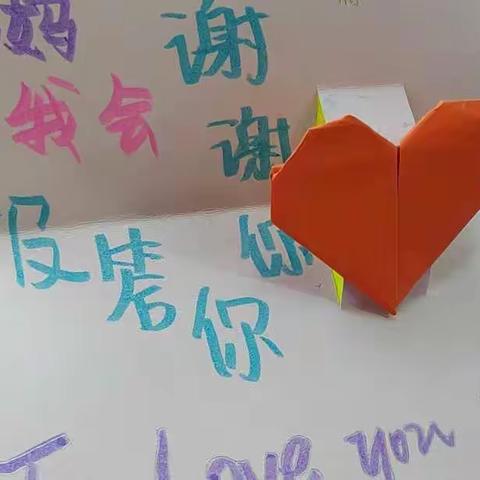 妈
谢谢你
我会
报答你
I Love you